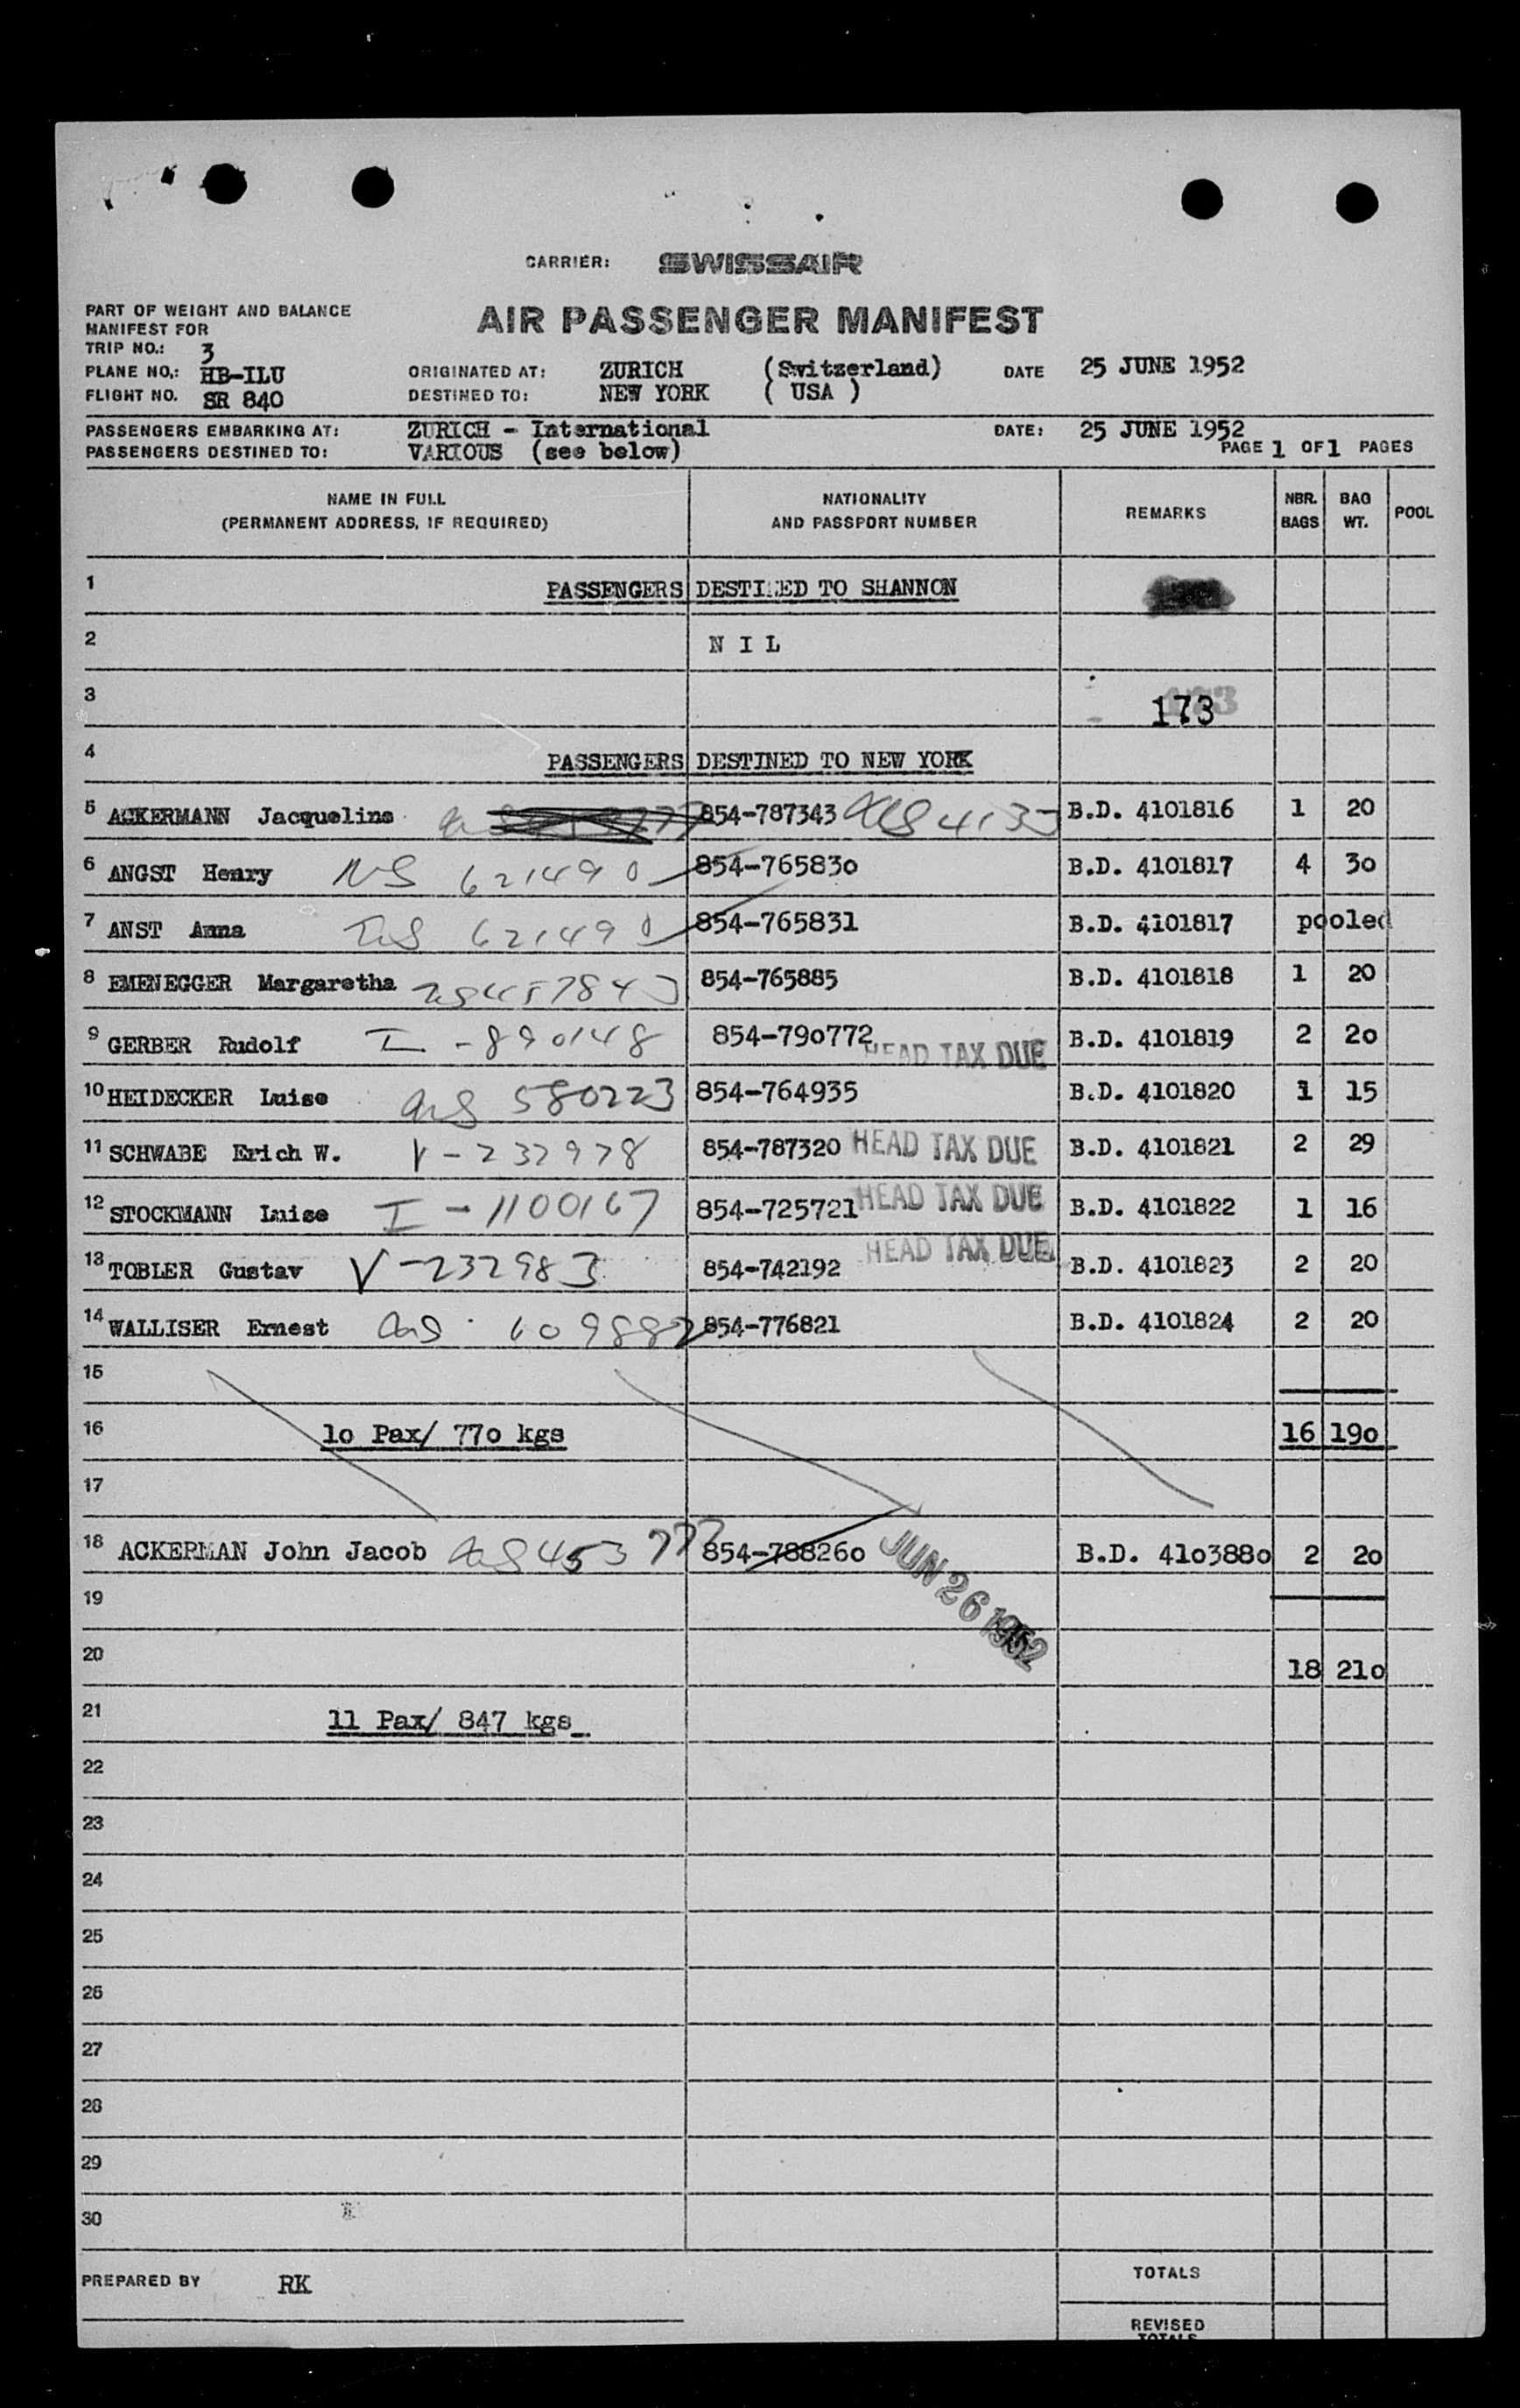 CARRIER: SWISSAIR
AIR PASSENGER MANIFEST
PART OF WEIGHT AND BALANCE
MANIFEST FOR
TRIP NO.: 3
PLANE NO.: HB-ILU ORIGINATED AT: ZURICH (Switzerland) DATE 25 JUNE 1952
FLIGHT NO. SR 840 DESTINED TO: NEW YORK ( USA )
PASSENGERS EMBARKING AT: ZURICH - International DATE: 25 JUNE 1952
PASSENGERS DESTINED TO: VARIOUS (see below) PAGE 1 OF 1 PAGES
NAME IN FULL NATIONALITY REMARKS NBR. BAG POOL
(PERMANENT ADDRESS, IF REQUIRED) AND PASSPORT NUMBER BAGS WT.
1 PASSENGERS DESTINED TO SHANNON
2 N I L
3 173
4 PASSENGERS DESTINED TO NEW YORK
5 ACKERMANN Jacqueline 854-787343 B.D. 4101816 1 20
6 ANGST Henry 621490 854-765830 B.D. 4101817 4 30
7 ANST Anna 621490 854-765831 B.D. 4101817 pooled
8 EMENEGGER Margaretha 854-765885 B.D. 4101818 1 20
9 GERBER Rudolf I -890148 854-790772 HEAD TAX DUE B.D. 4101819 2 20
10 HEIDECKER Luise 580223 854-764935 B.D. 4101820 1 15
11 SCHWABE Erich W. V-232978 854-787320 HEAD TAX DUE B.D. 4101821 2 29
12 STOCKMANN Luise I-1100167 854-725721 HEAD TAX DUE B.D. 4101822 1 16
13 TOBLER Gustav V-232983 854-742192 HEAD TAX DUE B.D. 4101823 2 20
14 WALLISER Ernest 609882 854-776821 B.D. 4101824 2 20
15
16 10 Pax/ 770 kgs 16 190
17
18 ACKERMAN John Jacob 453777 854-788260 B.D. 4103880 2 20
JUN 26 1952
19
20 18 210
21 11 Pax/ 847 kgs
22
23
24
25
26
27
28
29
30
PREPARED BY RK TOTALS
REVISED
TOTALS